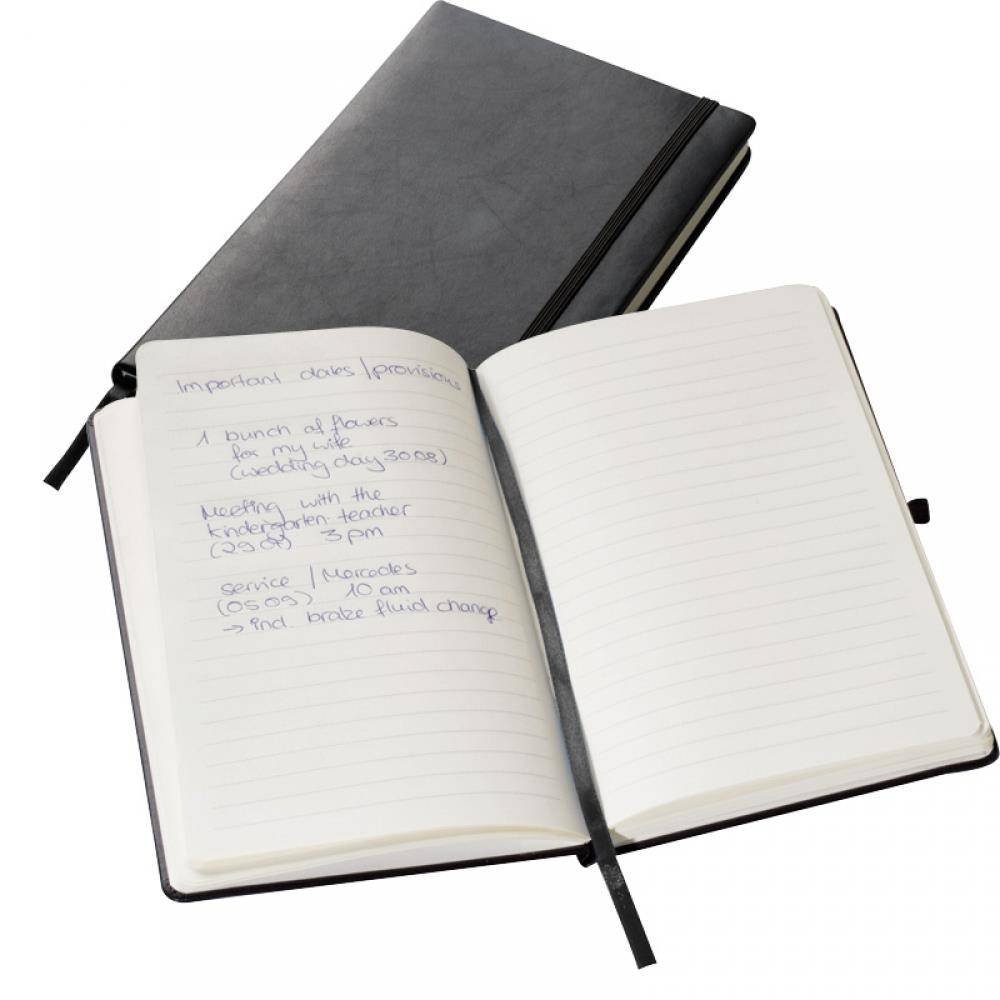 Important dates / provisions
1 bunch of flowers
for my wife
(wedding day 30.08)
Meeting with the
kindergarten teacher
(29.07) 3 pm
service / Mercedes
(05.09) 10 am
→ incl. brake fluid change